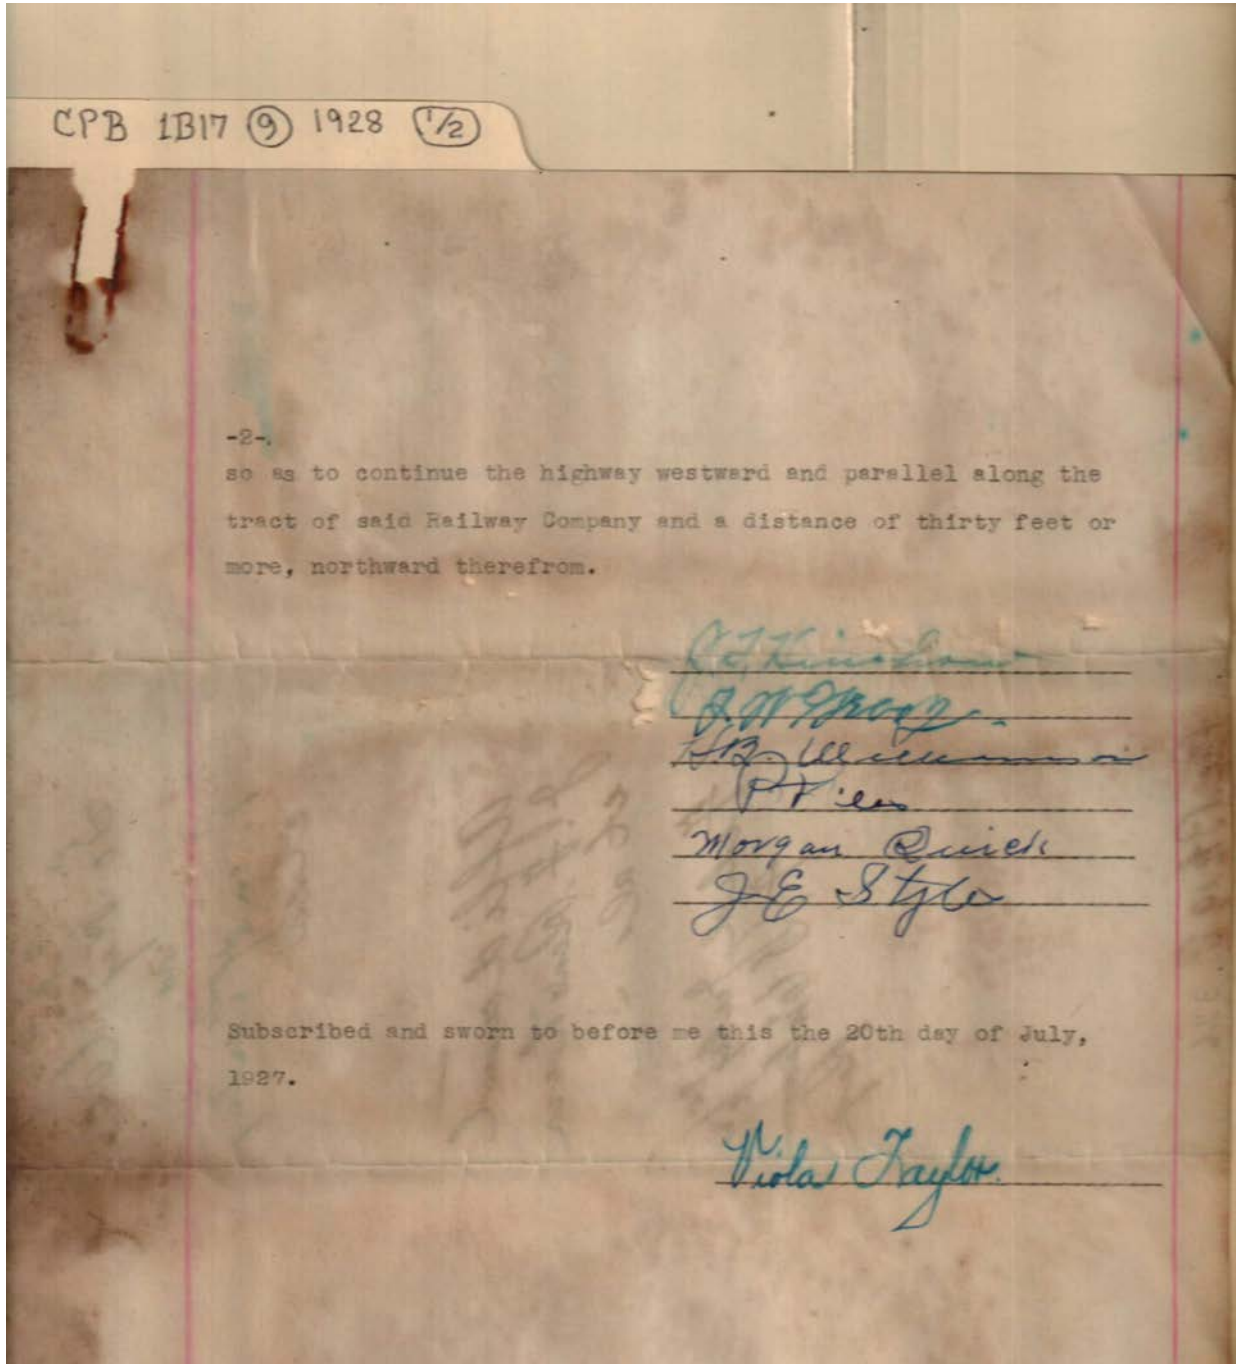 CPB 1B17 9 1928 1/2
-2-.
so as to continue the highway westward and parallel along the
tract of said Railway Company and a distance of thirty feet or
more, northward therefrom.
H.B. Williamson
Morgan Quick
J E Styles
Subscribed and sworn to before me this the 20th day of July,
1927.
Viola Taylor.